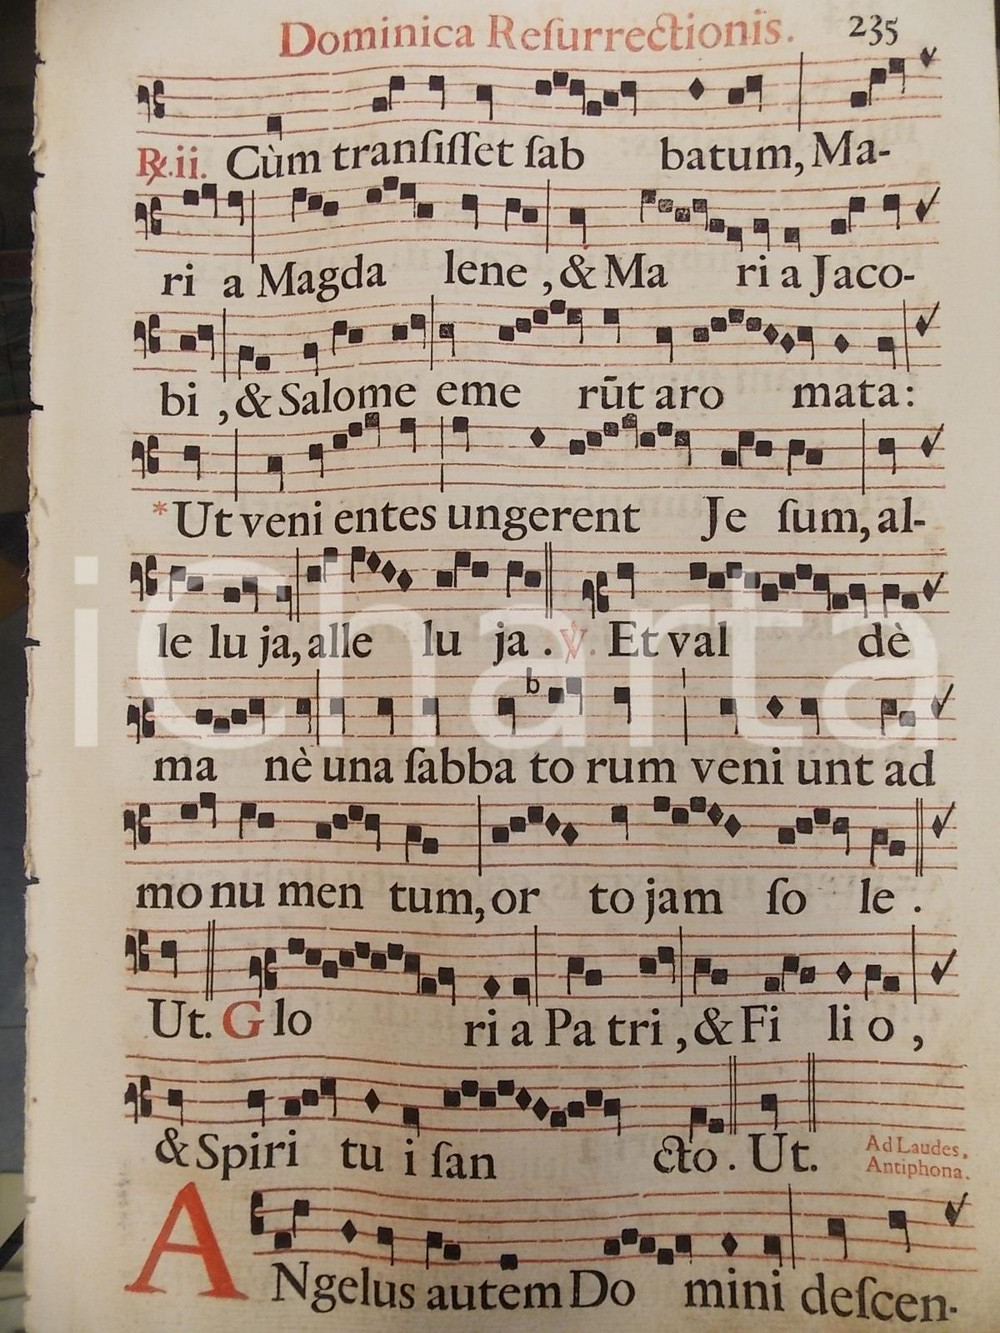 Dominica Reſurrectionis. 235
℟.ii. Cùm tranſiſſet ſab batum, Ma-
ri a Magda lene , & Ma ri a Jaco-
bi , & Salome eme rūt aro mata:
*Ut veni entes ungerent Je ſum, al-
le lu ja, alle lu ja . ℣. Et val dè
b
ma nè una ſabba to rum veni unt ad
mo nu men tum, or to jam ſo le .
Ut. Glo ri a Pa tri , & Fi li o ,
& Spiri tu i ſan cto . Ut. Ad Laudes,
Antiphona.
ANgelus autem Do mini deſcen-
iCharta